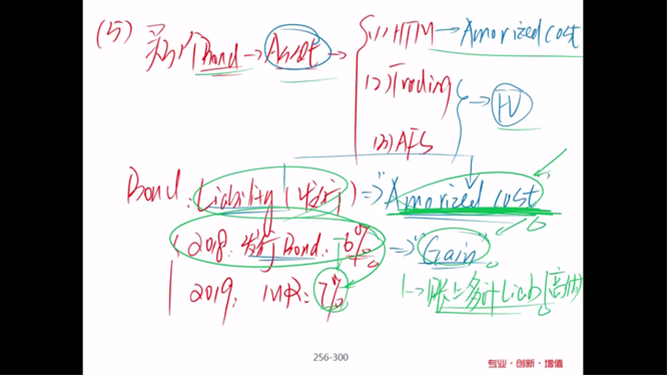 (5) 买个Bond → Asset → (1) HTM → Amorized cost
(2) Trading → FV
(3) AFS
Bond: Liability (发行) ⇒ "Amorized cost"
2018: 发行 Bond: 6% ⇒ "Gain"
2019: MR: 7% 账上多计Liab
256-300
专业·创新·增值